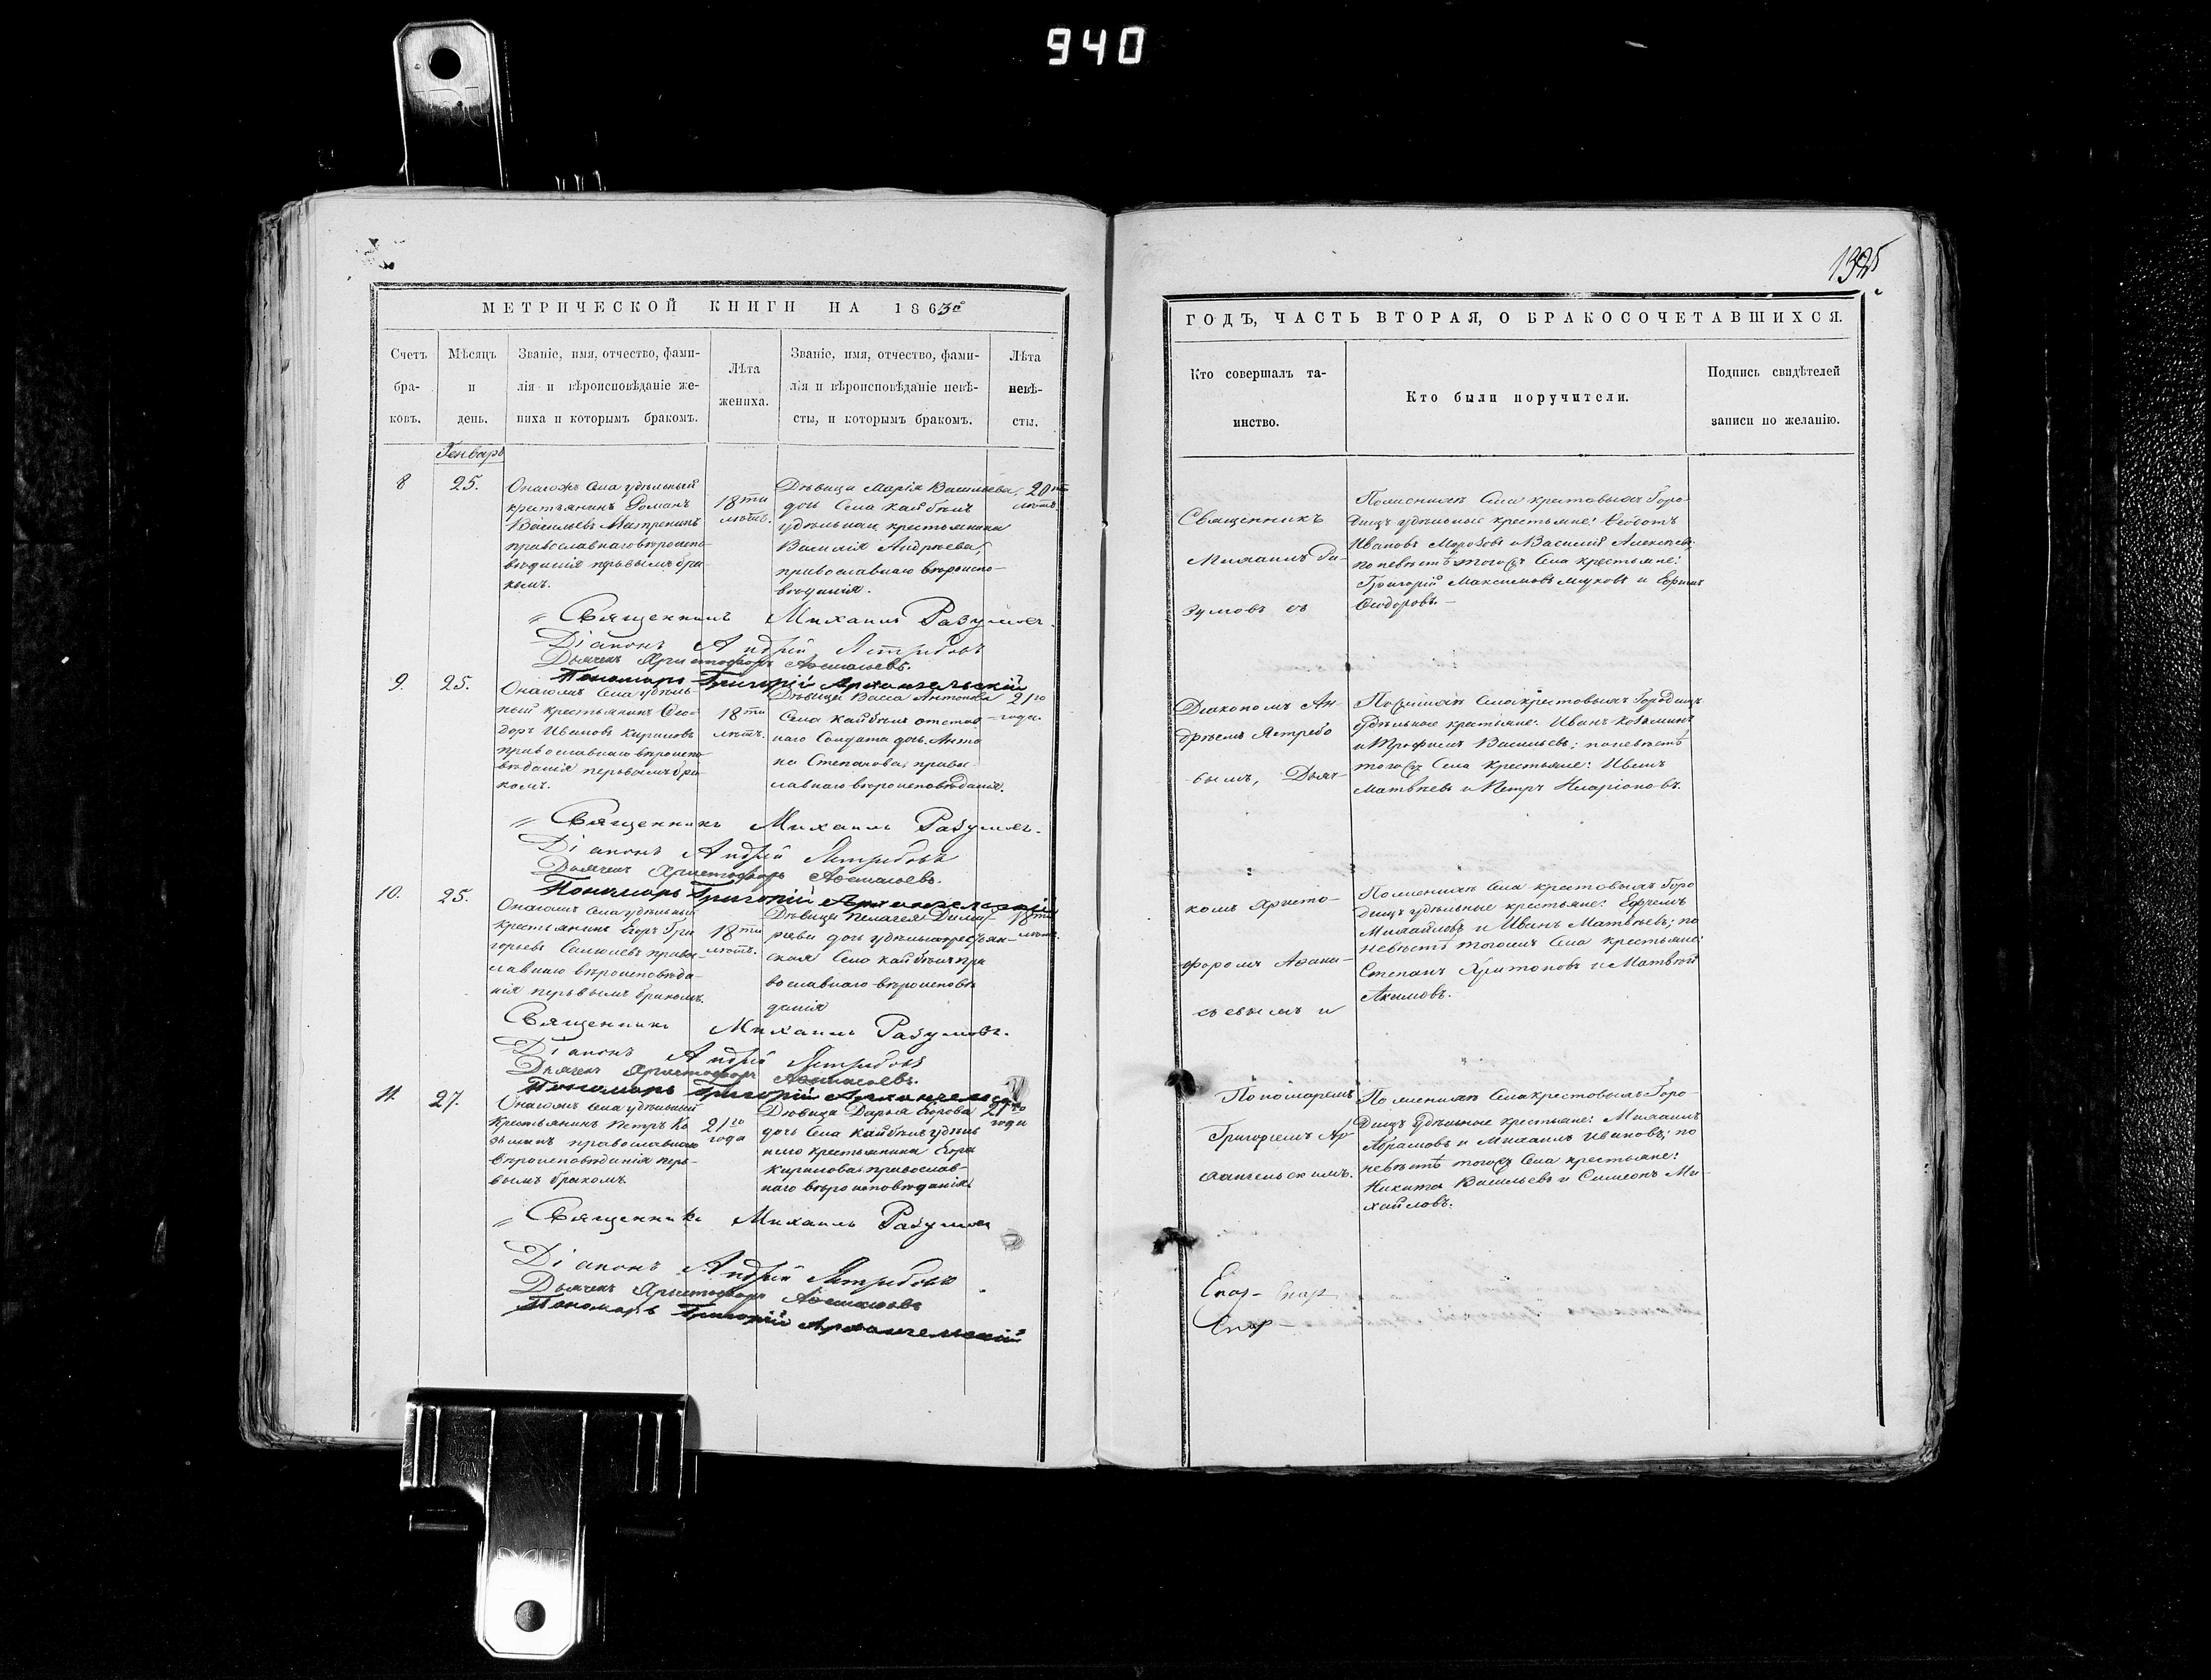 940
1325
МЕТРИЧЕСКОЙ КНИГИ НА 1863й
Счетъ бра-ковъ.
Мѣсяцъ и день.
Званіе, имя, отчество, фами-
лія и вѣроисповѣданіе же-
ниха и которымъ бракомъ.
Лѣта жениха.
Званіе, имя, отчество, фами-
лія и вѣроисповѣданіе невѣ-
сты, и которымъ бракомъ.
Лѣта невѣ-сты.
Генварь
8
25.
Онагожъ Села удѣльный
крестьянинъ Романъ
Васильевъ Матренинъ
православнаго вѣроиспо-
вѣданія первымъ бра-
комъ.
18ти
лѣтъ.
Дѣвица Марія Васильева,
дочь Села Кайбелъ
удѣльнаго крестьянина
Василія Андреева,
православнаго вѣроиспо-
вѣданія.
20ти
лѣтъ
Священникъ Михаилъ Разумовъ.
Діаконъ Андрей Ястребовъ
Дьячекъ Христофоръ Аѳанасьевъ.
Пономарь Григорій Архангельскій
9.
25.
Онагожъ Села удѣль-
ный крестьянинъ Ѳео-
доръ Ивановъ Кириловъ
православнаго вѣроиспо-
вѣданія первымъ бра-
комъ.
18ти
лѣтъ.
Дѣвица Васса Антонова
Села Кайбелъ отстав-
наго Солдата дочь Анто
на Степанова, право
славнаго вѣроисповѣданія.
21го
года.
Священникъ Михаилъ Разумовъ.
Діаконъ Андрей Ястребовъ
Дьячекъ Христофоръ Аѳанасьевъ.
Пономарь Григорій Архангельскій
10.
25.
Онагожъ Села удѣльный
крестьянинъ Егоръ Гри
горьевъ правос-
лавнаго вѣроисповѣда-
нія первымъ бракомъ.
18ти
лѣтъ.
Дѣвица Пелагея Дмит
ріева дочь удѣльная крестьян-
ская Села Кайбелъ пра
вославнаго вѣроисповѣ
данія
18ти
лѣтъ.
Священникъ Михаилъ Разумовъ.
Діаконъ Андрей Ястребовъ
Дьячекъ Христофоръ Аѳанасьевъ.
Пономарь Григорій Архангельскій
11.
27.
Онагожъ Села удѣльный
крестьянинъ Петръ Ко
зьминъ православнаго
вѣроисповѣданія пер-
вымъ бракомъ.
21го
года
Дѣвица Дарья Егорова
дочь Села Кайбелъ удѣль
наго крестьянина Егора
Кирилова, православ-
наго вѣроисповѣданія
21го
года
Священникъ Михаилъ Разумовъ
Діаконъ Андрей Ястребовъ
Дьячекъ Христофоръ Аѳанасьевъ
Пономарь Григорій Архангельскій
ГОДЪ, ЧАСТЬ ВТОРАЯ, О БРАКОСОЧЕТАВШИХСЯ.
Кто совершалъ та-
инство.
Кто были поручители.
Подпись свидѣтелей
записи по желанію.
Священникъ
Михаилъ Ра-
зумовъ съ
Діакономъ Ан-
дреемъ Ястребо
вымъ, Дьяч-
комъ Христо-
форомъ Аѳана-
сьевымъ и
Пономаремъ
Григоріемъ Ар
хангельскимъ.
По женихѣ Села крестовыхъ Горо-
дищъ удѣльные крестьяне: Ѳедотъ
Ивановъ Морозовъ и Василій Алексѣевъ;
по невѣстѣ тогожъ Села крестьяне:
Григорій Максимовъ Жуковъ и Ефимъ
Ѳеодоровъ.
По женихѣ Села крестовыхъ Городищъ
удѣльные крестьяне: Иванъ Козьминъ
и Трофимъ Васильевъ; по невѣстѣ
тогожъ Села крестьяне: Иванъ
Матвѣевъ и Петръ Иларіоновъ.
По женихѣ Села крестовыхъ Горо
дищъ удѣльные крестьяне: Ефремъ
Михайловъ и Иванъ Матвѣевъ; по
невѣстѣ тогожъ Села крестьяне:
Степанъ Харитоновъ и Матвѣй
Акимовъ.
По женихѣ Села крестовыхъ Горо-
дищъ удѣльные крестьяне: Михаилъ
Абрамовъ и Михаилъ Ивановъ; по
невѣстѣ тогожъ Села крестьяне:
Никита Васильевъ и Симеонъ Ми-
хайловъ.